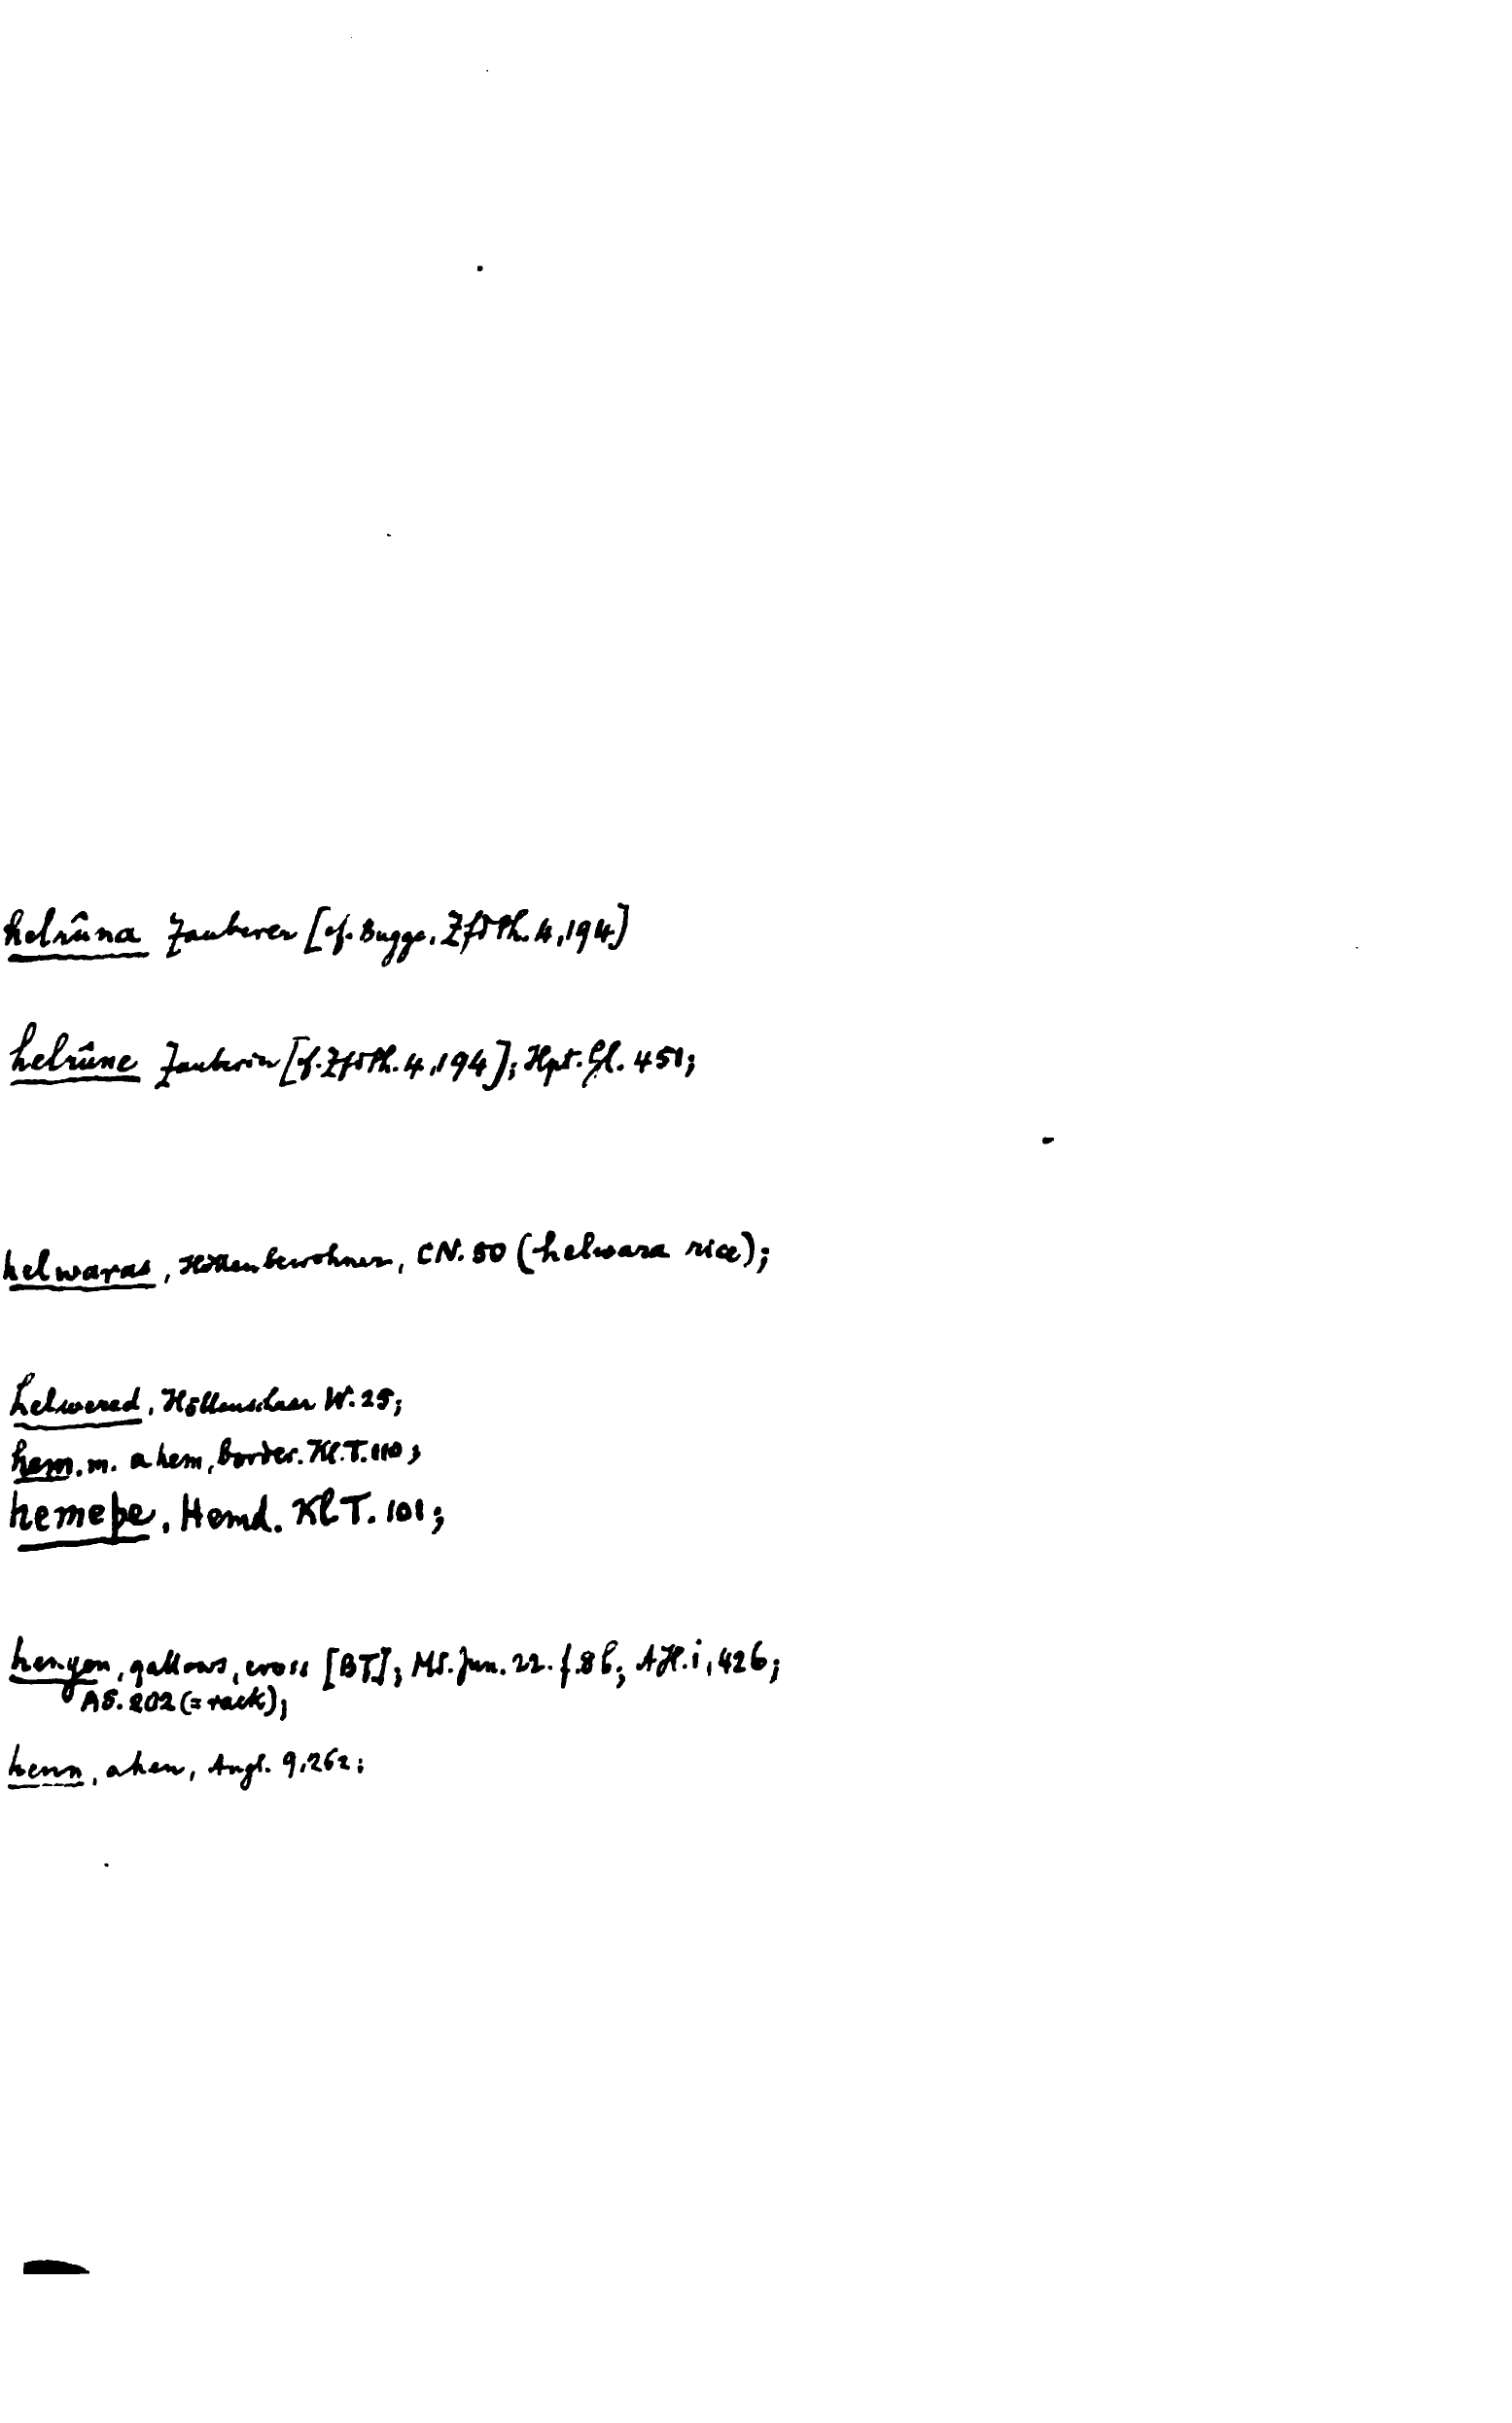 helrûna Zauberer [cf. Bugge, ZfdPh. 4,194]
helrûne Zauberin [cf. ZfdPh. 4,194]; Hpt. Gl. 451;
helwaras, Höllenbewohner, CN. 50 (helwara rice);
helwered, Höllenschaar W. 25;
hem. m. a hem, border. Kl.T. 110;
hemeþe, Hemd. KlT. 101;
hengen, gallows, cross [BT]; MS. Jun. 22. f. 8b; AH. i, 426;
AS. 202 (= rack);
henn, a hen, Angl. 9,262;